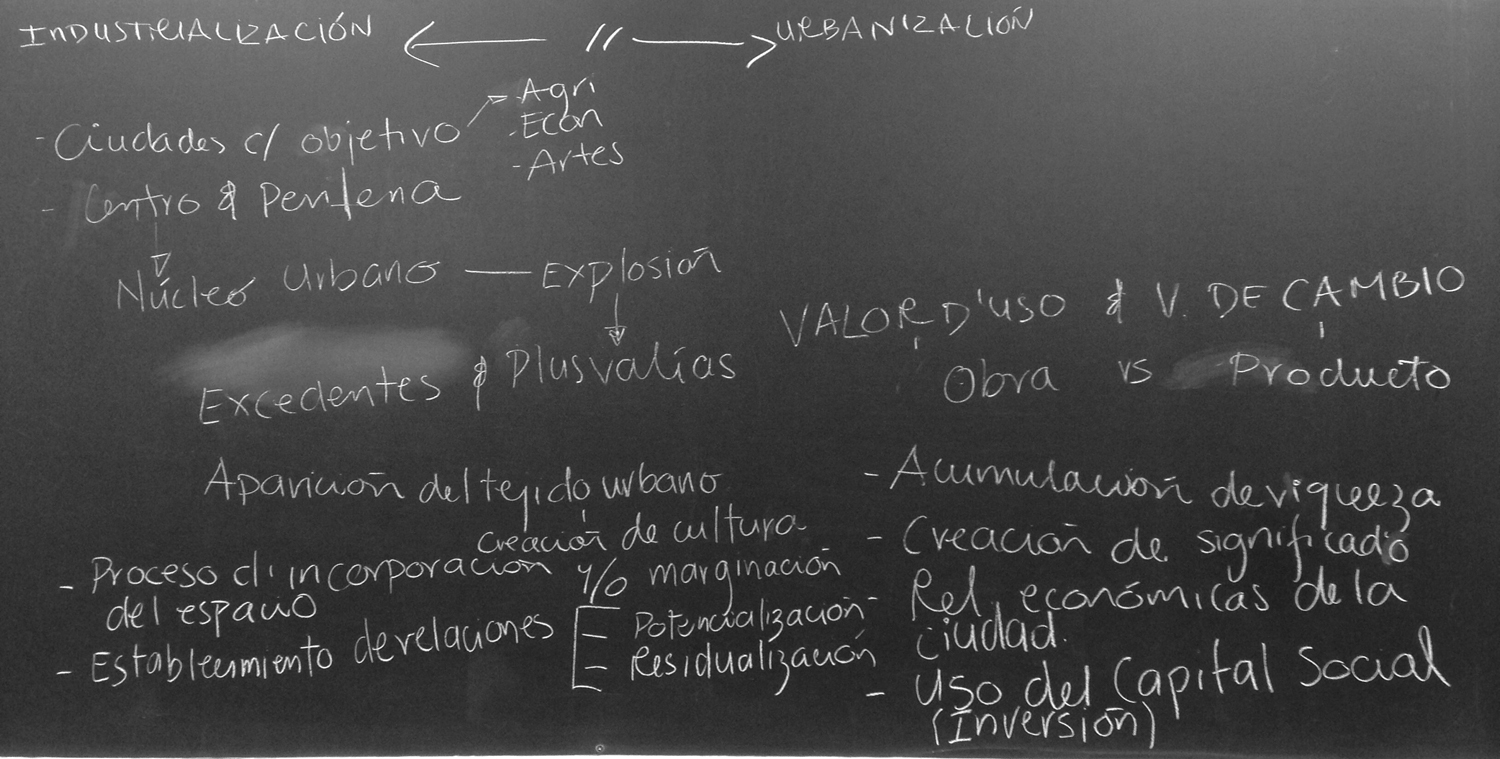 INDUSTRIALIZACIÓN ← // → URBANIZACIÓN
- Ciudades c/ objetivo → - Agri
- Econ
- Artes
- Centro & Periferia
Núcleo Urbano — Explosión
Excedentes & Plusvalías
Aparición del tejido urbano
creación de cultura
- Proceso d' incorporación y/o marginación
del espacio
- Establecimiento de relaciones [ - Potencialización
- Residualización
VALOR D'USO & V. DE CAMBIO
Obra vs Producto
- Acumulación de riqueza
- Creación de significado
- Rel. económicas de la
ciudad.
- Uso del Capital Social
(Inversión)